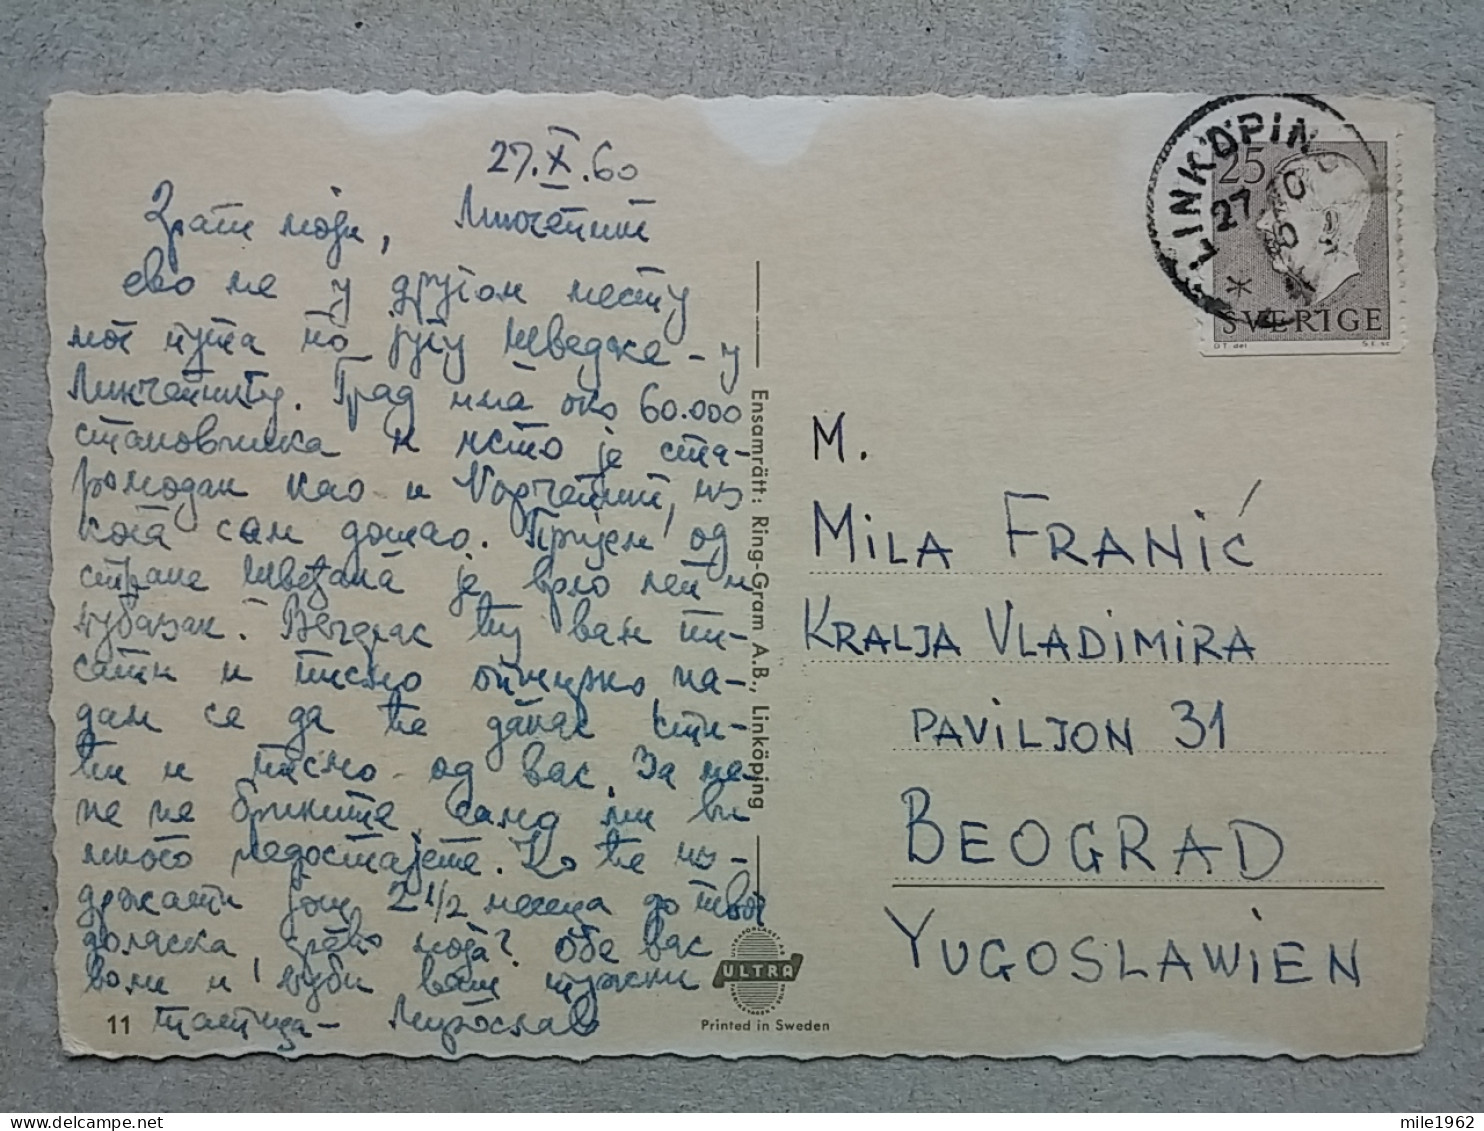 27.X.60
Драги моји, Линчепинг
ево ме у другом месту
мог пута по југу Шведске - у
Линчепингу. Град има око 60.000
становника и исто је ста-
ромодан као и Норчепинг, из
кога сам дошао. Пријем од
стране Швеђана је врло леп и
љубазан. Вечерас ћу вам пи-
сати и писмо опширно на-
дам се да ће данас сти-
ћи и писмо од вас. За ме-
не не брините, само ми ви
много недостајете. Ко ће из-
држати још 2 1/2 месеца до твог
доласка, моја? Обе вас
воли и љуби ваш
- Мирослав
11
Ensamrätt: Ring-Gram A.B., Linköping
ULTRA
Printed in Sweden
LINKÖPING
27 10
25
SVERIGE
M.
MILA FRANIĆ
KRALJA VLADIMIRA
PAVILJON 31
BEOGRAD
YUGOSLAWIEN
mile1962